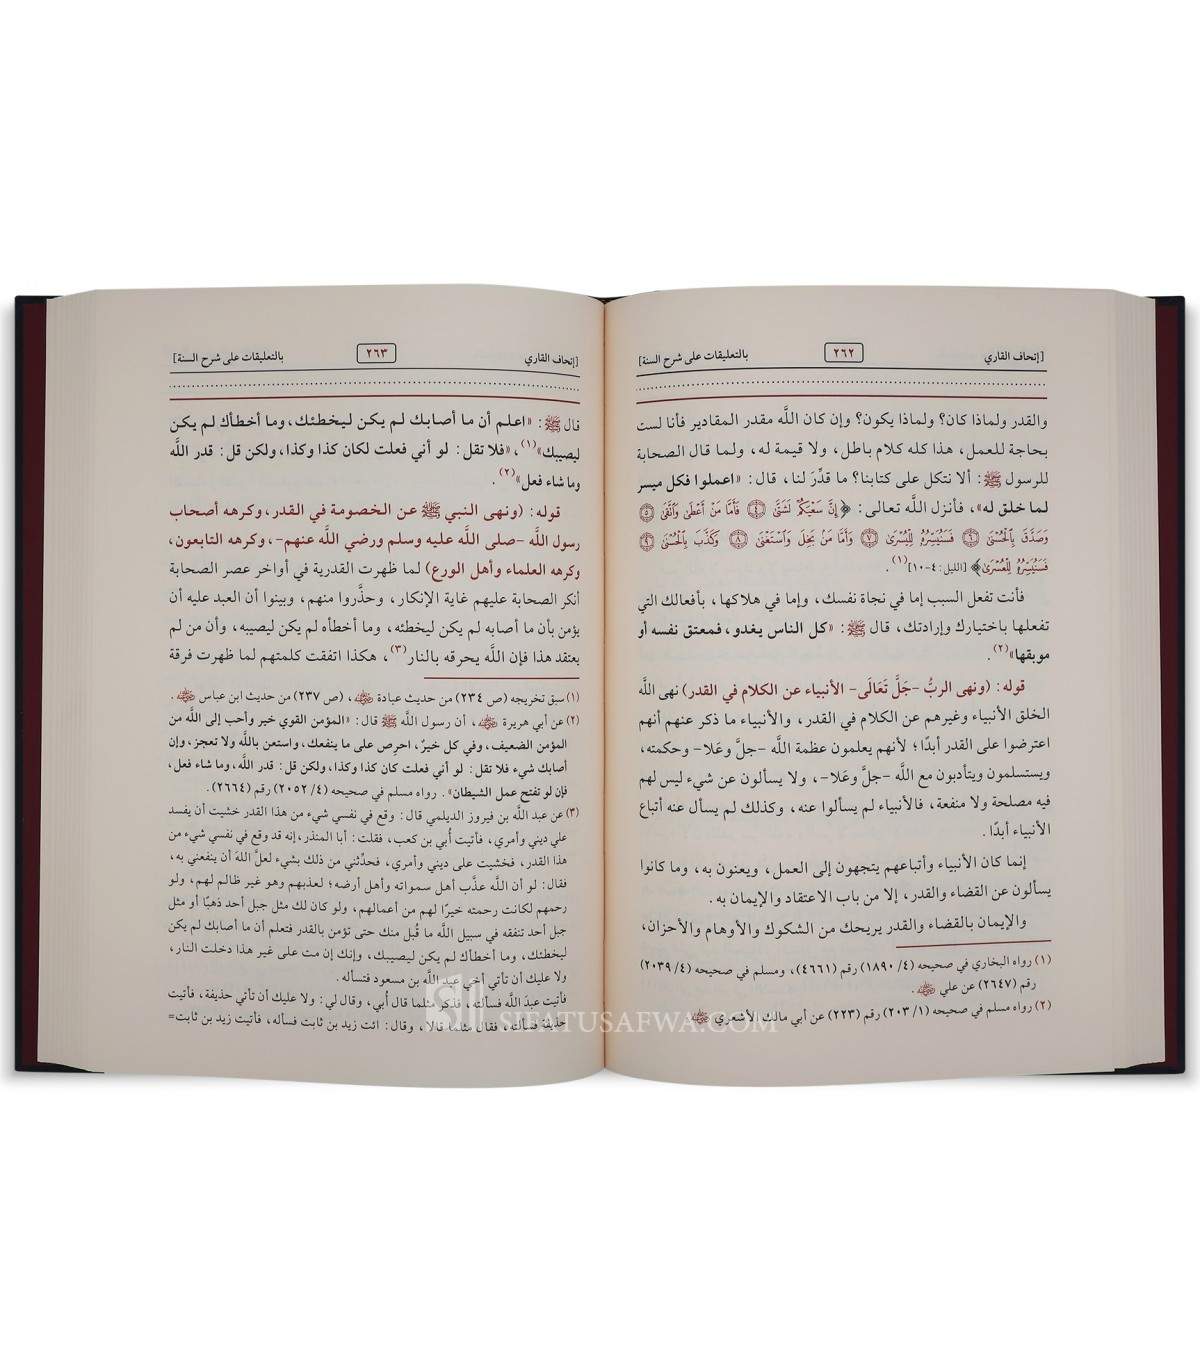 [إتحاف القاري ٢٦٢ بالتعليقات على شرح السنة]
والقدر ولماذا كان؟ ولماذا يكون؟ وإن كان اللَّه مقدر المقادير فأنا لست
بحاجة للعمل، هذا كله كلام باطل، ولا قيمة له، ولما قال الصحابة
للرسول ﷺ: ألا نتكل على كتابنا؟ ما قدِّرَ لنا، قال: «اعملوا فكل ميسر
لما خلق له»، فأنزل اللَّه تعالى: ﴿إِنَّ سَعْيَكُمْ لَشَتَّىٰ ٤ فَأَمَّا مَنْ أَعْطَىٰ وَاتَّقَىٰ ٥
وَصَدَّقَ بِالْحُسْنَىٰ ٦ فَسَنُيَسِّرُهُ لِلْيُسْرَىٰ ٧ وَأَمَّا مَنْ بَخِلَ وَاسْتَغْنَىٰ ٨ وَكَذَّبَ بِالْحُسْنَىٰ ٩
فَسَنُيَسِّرُهُ لِلْعُسْرَىٰ﴾ [الليل: ٤-١٠](١).
فأنت تفعل السبب إما في نجاة نفسك، وإما في هلاكها، بأفعالك التي
تفعلها باختيارك وإرادتك، قال ﷺ: «كل الناس يغدو، فمعتق نفسه أو
موبقها»(٢).
قوله: (ونهى الربُّ -جَلَّ تَعَالَى- الأنبياء عن الكلام في القدر) نهى اللَّه
الخلق الأنبياء وغيرهم عن الكلام في القدر، والأنبياء ما ذكر عنهم أنهم
اعترضوا على القدر أبدًا؛ لأنهم يعلمون عظمة اللَّه -جلَّ وعَلا- وحكمته،
ويستسلمون ويتأدبون مع اللَّه -جلَّ وعَلا-، ولا يسألون عن شيء ليس لهم
فيه مصلحة ولا منفعة، فالأنبياء لم يسألوا عنه، وكذلك لم يسأل عنه أتباع
الأنبياء أبدًا.
إنما كان الأنبياء وأتباعهم يتجهون إلى العمل، ويعنون به، وما كانوا
يسألون عن القضاء والقدر، إلا من باب الاعتقاد والإيمان به.
والإيمان بالقضاء والقدر يريحك من الشكوك والأوهام والأحزان،
(١) رواه البخاري في صحيحه (٤/ ١٨٩٠) رقم (٤٦٦١)، ومسلم في صحيحه (٤/ ٢٠٣٩)
رقم (٢٦٤٧) عن علي رضي الله عنه.
(٢) رواه مسلم في صحيحه (١/ ٢٠٣) رقم (٢٢٣) عن أبي مالك الأشعري رضي الله عنه.
[إتحاف القاري ٢٦٣ بالتعليقات على شرح السنة]
قال ﷺ: «اعلم أن ما أصابك لم يكن ليخطئك، وما أخطأك لم يكن
ليصيبك»(١)، «فلا تقل: لو أني فعلت لكان كذا وكذا، ولكن قل: قدر اللَّه
وما شاء فعل»(٢).
قوله: (ونهى النبي ﷺ عن الخصومة في القدر، وكرهه أصحاب
رسول اللَّه -صلى اللَّه عليه وسلم ورضي اللَّه عنهم-، وكرهه التابعون،
وكرهه العلماء وأهل الورع) لما ظهرت القدرية في أواخر عصر الصحابة
أنكر الصحابة عليهم غاية الإنكار، وحذَّروا منهم، وبينوا أن العبد عليه أن
يؤمن بأن ما أصابه لم يكن ليخطئه، وما أخطأه لم يكن ليصيبه، وأن من لم
يعتقد هذا فإن اللَّه يحرقه بالنار(٣)، هكذا اتفقت كلمتهم لما ظهرت فرقة
(١) سبق تخريجه (ص ٢٣٤) من حديث عبادة رضي الله عنه، (ص ٢٣٧) من حديث ابن عباس رضي الله عنهما.
(٢) عن أبي هريرة رضي الله عنه، أن رسول اللَّه ﷺ قال: «المؤمن القوي خير وأحب إلى اللَّه من
المؤمن الضعيف، وفي كل خيرٌ، احرص على ما ينفعك، واستعن باللَّه ولا تعجز، وإن
أصابك شيء فلا تقل: لو أني فعلت كان كذا وكذا، ولكن قل: قدر اللَّه، وما شاء فعل،
فإن لو تفتح عمل الشيطان». رواه مسلم في صحيحه (٤/ ٢٠٥٢) رقم (٢٦٦٤).
(٣) عن عبد اللَّه بن فيروز الديلمي قال: وقع في نفسي شيء من هذا القدر خشيت أن يفسد
علي ديني وأمري، فأتيت أُبي بن كعب، فقلت: أبا المنذر، إنه قد وقع في نفسي شيء من
هذا القدر، فخشيت على ديني وأمري، فحدِّثني من ذلك بشيء لعلَّ اللهَ أن ينفعني به،
فقال: لو أن اللَّه عذَّب أهل سمواته وأهل أرضه؛ لعذبهم وهو غير ظالم لهم، ولو
رحمهم لكانت رحمته خيرًا لهم من أعمالهم، ولو كان لك مثل جبل أحد ذهبًا أو مثل
جبل أحد تنفقه في سبيل اللَّه ما قُبل منك حتى تؤمن بالقدر فتعلم أن ما أصابك لم يكن
ليخطئك، وما أخطأك لم يكن ليصيبك، وإنك إن مت على غير هذا دخلت النار،
ولا عليك أن تأتي أخي عبد اللَّه بن مسعود فتسأله.
فأتيت عبدَ اللَّه فسألته، فذكر مثلما قال أُبي، وقال لي: ولا عليك أن تأتي حذيفة، فأتيت
حذيفة فسألته، فقال مثلما قالا، وقال: ائت زيد بن ثابت فسأله، فأتيت زيد بن ثابت=
SIFATUSAFWA.COM